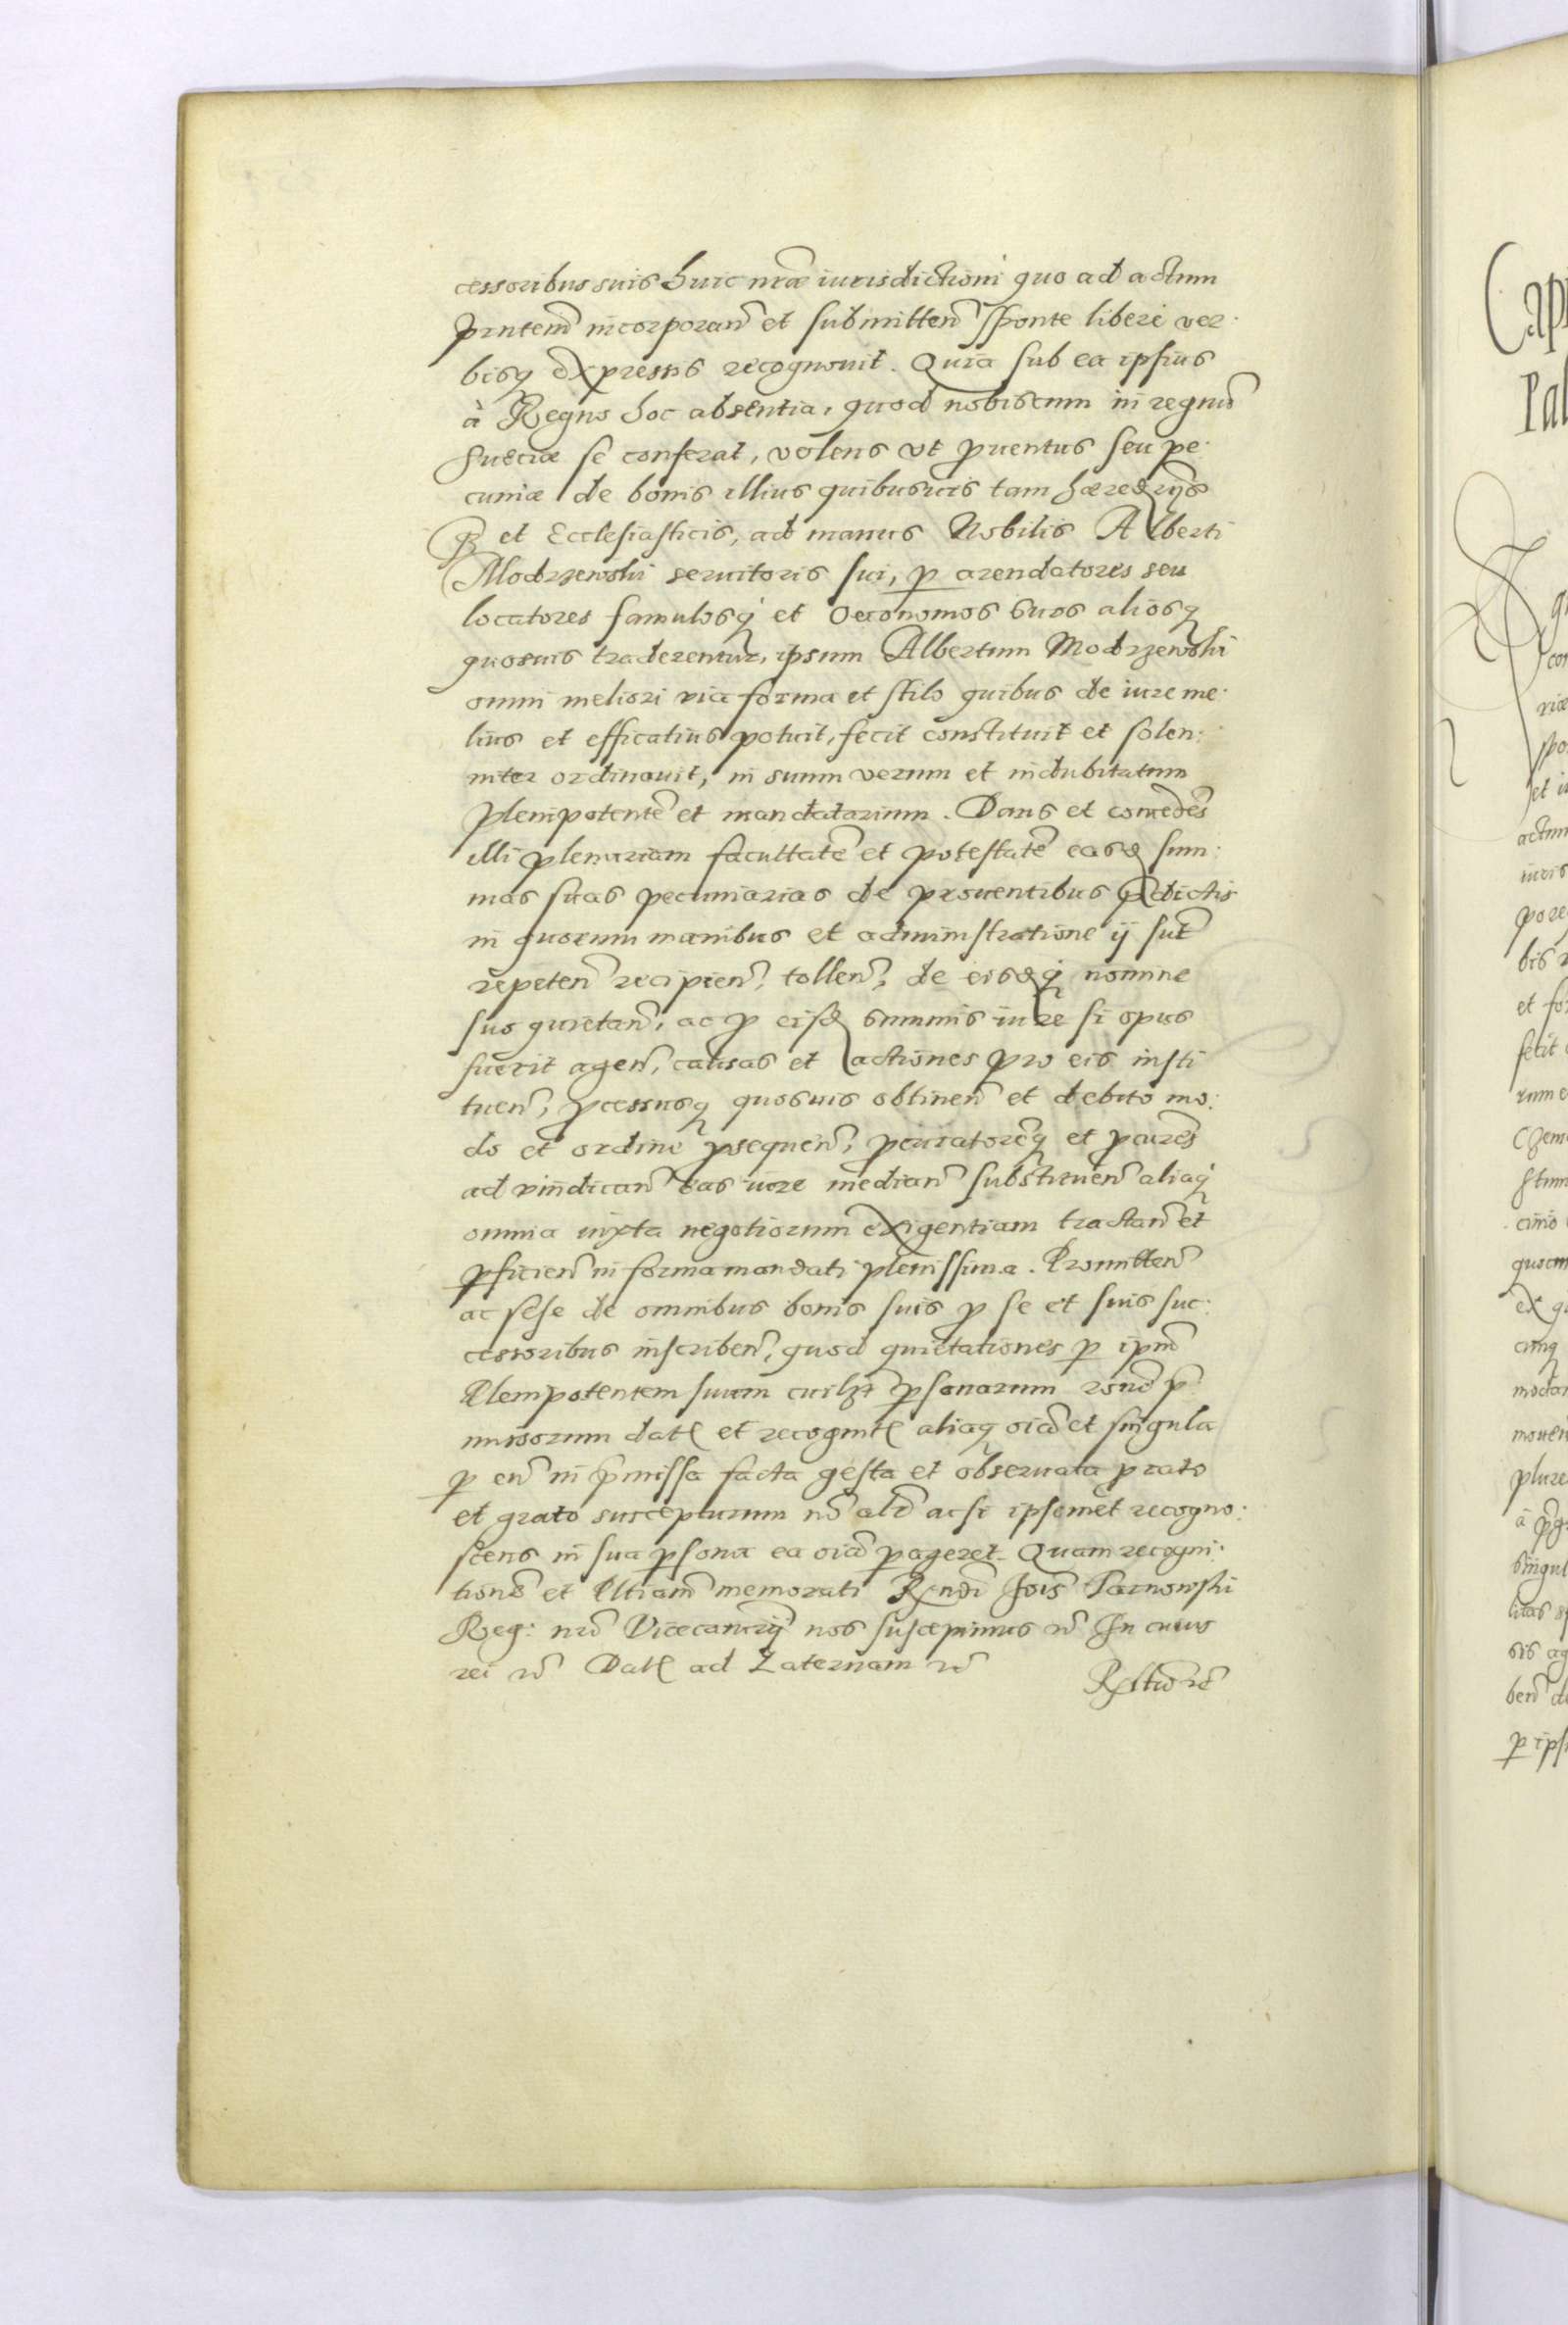 cessoribus suis huic nrae iurisdictioni quo ad actum
pntem incorporan et submitten sponte libere ver.
bisq expressis recognovit. Quia sub ea ipsius
à Regno hoc absentia, quod nobiscum in regnum
Sueciae se conferat, volens vt pventus seu pe.
cuniae de bonis illius quibusuis tam haeredrijs
q et Ecclesiasticis, ad manus Nobilis Alberti
Modrzewski seruitoris sui, p arendatores seu
locatores famulosq et Oeconomos suos aliosq
quosuis traderentur, ipsum Albertum Modrzewski
omni meliori via forma et stilo quibus de iure me.
lius et efficatius potuit, fecit constituit et solen:
niter ordinauit, in suum verum et indubitatum
Plenipotente et mandatarium. Dans et concedes
illi plenariam facultate et potestate easd sum:
mas suas pecuniarias de prouentibus pdictis
in quorum manibus et administratione ij sut
repeten recipien, tollen, de eisdq nomine
suo quietan, ac p eisd summis iure si opus
fuerit agen, causas et actiones pro eis insti
tuen, pcessusq quosuis obtinen et debito mo:
do et ordine psequen, pcuratoreq et pcures
ad vindican eas iure median substituen aliaq
omnia iuxta negotiorum exigentiam tractan et
pficien in forma mandati plenissima. Promitten
ac sese de omnibus bonis suis p se et suis suc:
cessoribus inscriben, quod quietationes p ipm
Plenipotentem suum cuilzt psonarum rone p
missorum dat et recognit aliaq oia et singula
p eu in pmissa facta gesta et obseruata p rato
et grato suscepturum no alr acsi ipsemet recogno:
scens in sua psona ea oia pageret. Quam recogni:
tione et memorati Rndi Jois Tarnowski
Reg: nri Vicecancrij nos suscepimus rc In cuius
rei rc Dat ad Laternam rc